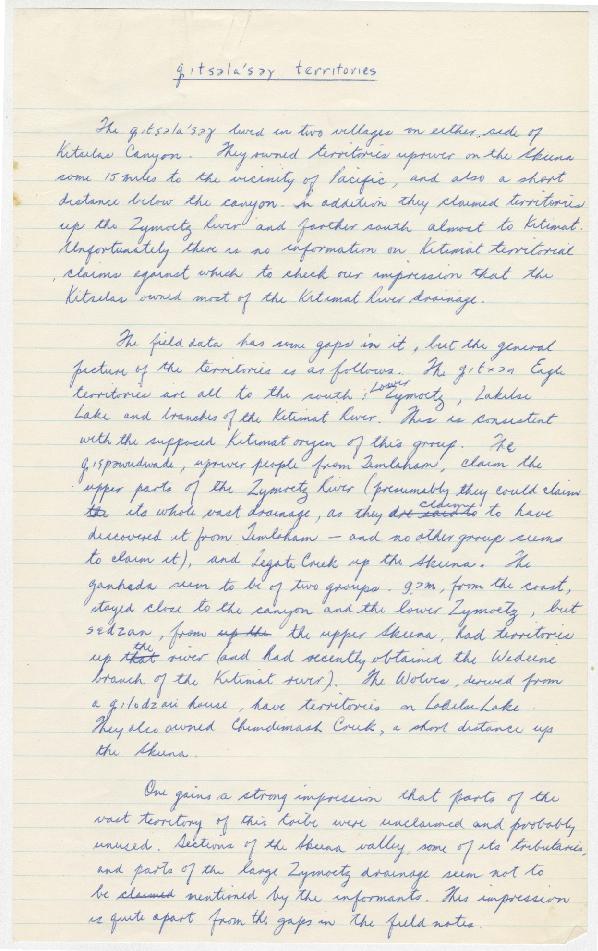 gitsəla'səγ territories
The gitsəla'səγ lived in two villages on either side of
Kitselas Canyon. They owned territories upriver on the Skeena
some 15 miles to the vicinity of Pacific, and also a short
distance below the canyon. In addition they claimed territories
up the Zymoetz River and farther south almost to Kitimat.
Unfortunately there is no information on Kitimat territorial
claims against which to check our impression that the
Kitselas owned most of the Kitimat River drainage.
The field data has some gaps in it, but the general
picture of the territories is as follows. The Eagle
territories are all to the south: Lower Zymoetz, Lakelse
Lake and branches of the Kitimat River. This is consistent
with the supposed Kitimat origin of this group. The
gispawudwade, upriver people from Temlaham, claim the
upper parts of the Zymoetz River (presumably they could claim
the its whole vast drainage, as they are said to claim to have
discovered it from Temlaham — and no other group seems
to claim it), and Legate Creek up the Skeena. The
ganhada seem to be of two groups. gəm, from the coast,
stayed close to the canyon and the lower Zymoetz, but
sedzan, from up the the upper Skeena, had territories
up that the river (and had recently obtained the Wedeene
branch of the Kitimat river). The Wolves, derived from
a gilodzau house, have territories on Lakelse Lake.
They also owned Chimdimash Creek, a short distance up
the Skeena.
One gains a strong impression that parts of the
vast territory of this tribe were unclaimed and probably
unused. Sections of the Skeena valley, some of its tributaries,
and parts of the large Zymoetz drainage seem not to
be claimed mentioned by the informants. This impression
is quite apart from the gaps in the field notes.